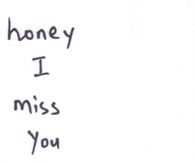 honey
I
miss
You